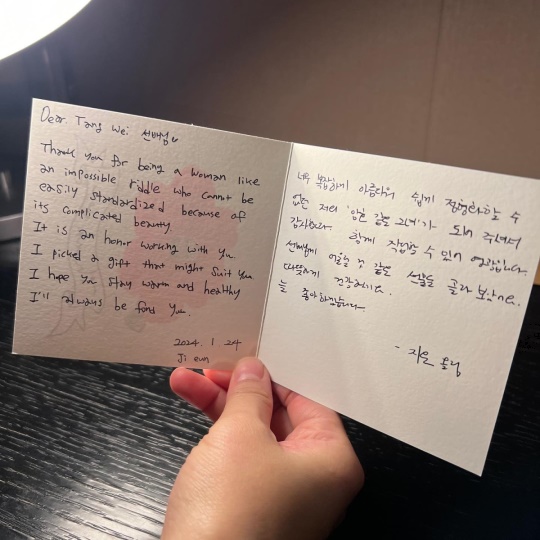 Dear Tang Wei 선배님
Thank you for being a woman like
an impossible riddle who cannot be
easily standardized because of
its complicated beauty
It is an honor working with you.
I picked a gift that might suit you
I hope you stay warm and healthy
I'll always be fond you.
2024. 1 24
Ji eun
너무 복잡하게 아름다워 쉽게 정형화할 수
없는 저의 '암호 같은 그녀'가 되어 주셔서
감사해요 함께 작업할 수 있어 영광입니다.
선배님께 어울릴 것 같은 선물을 골라 보았어요.
따뜻하게 건강하세요.
늘 좋아하겠습니다
- 지은 올림